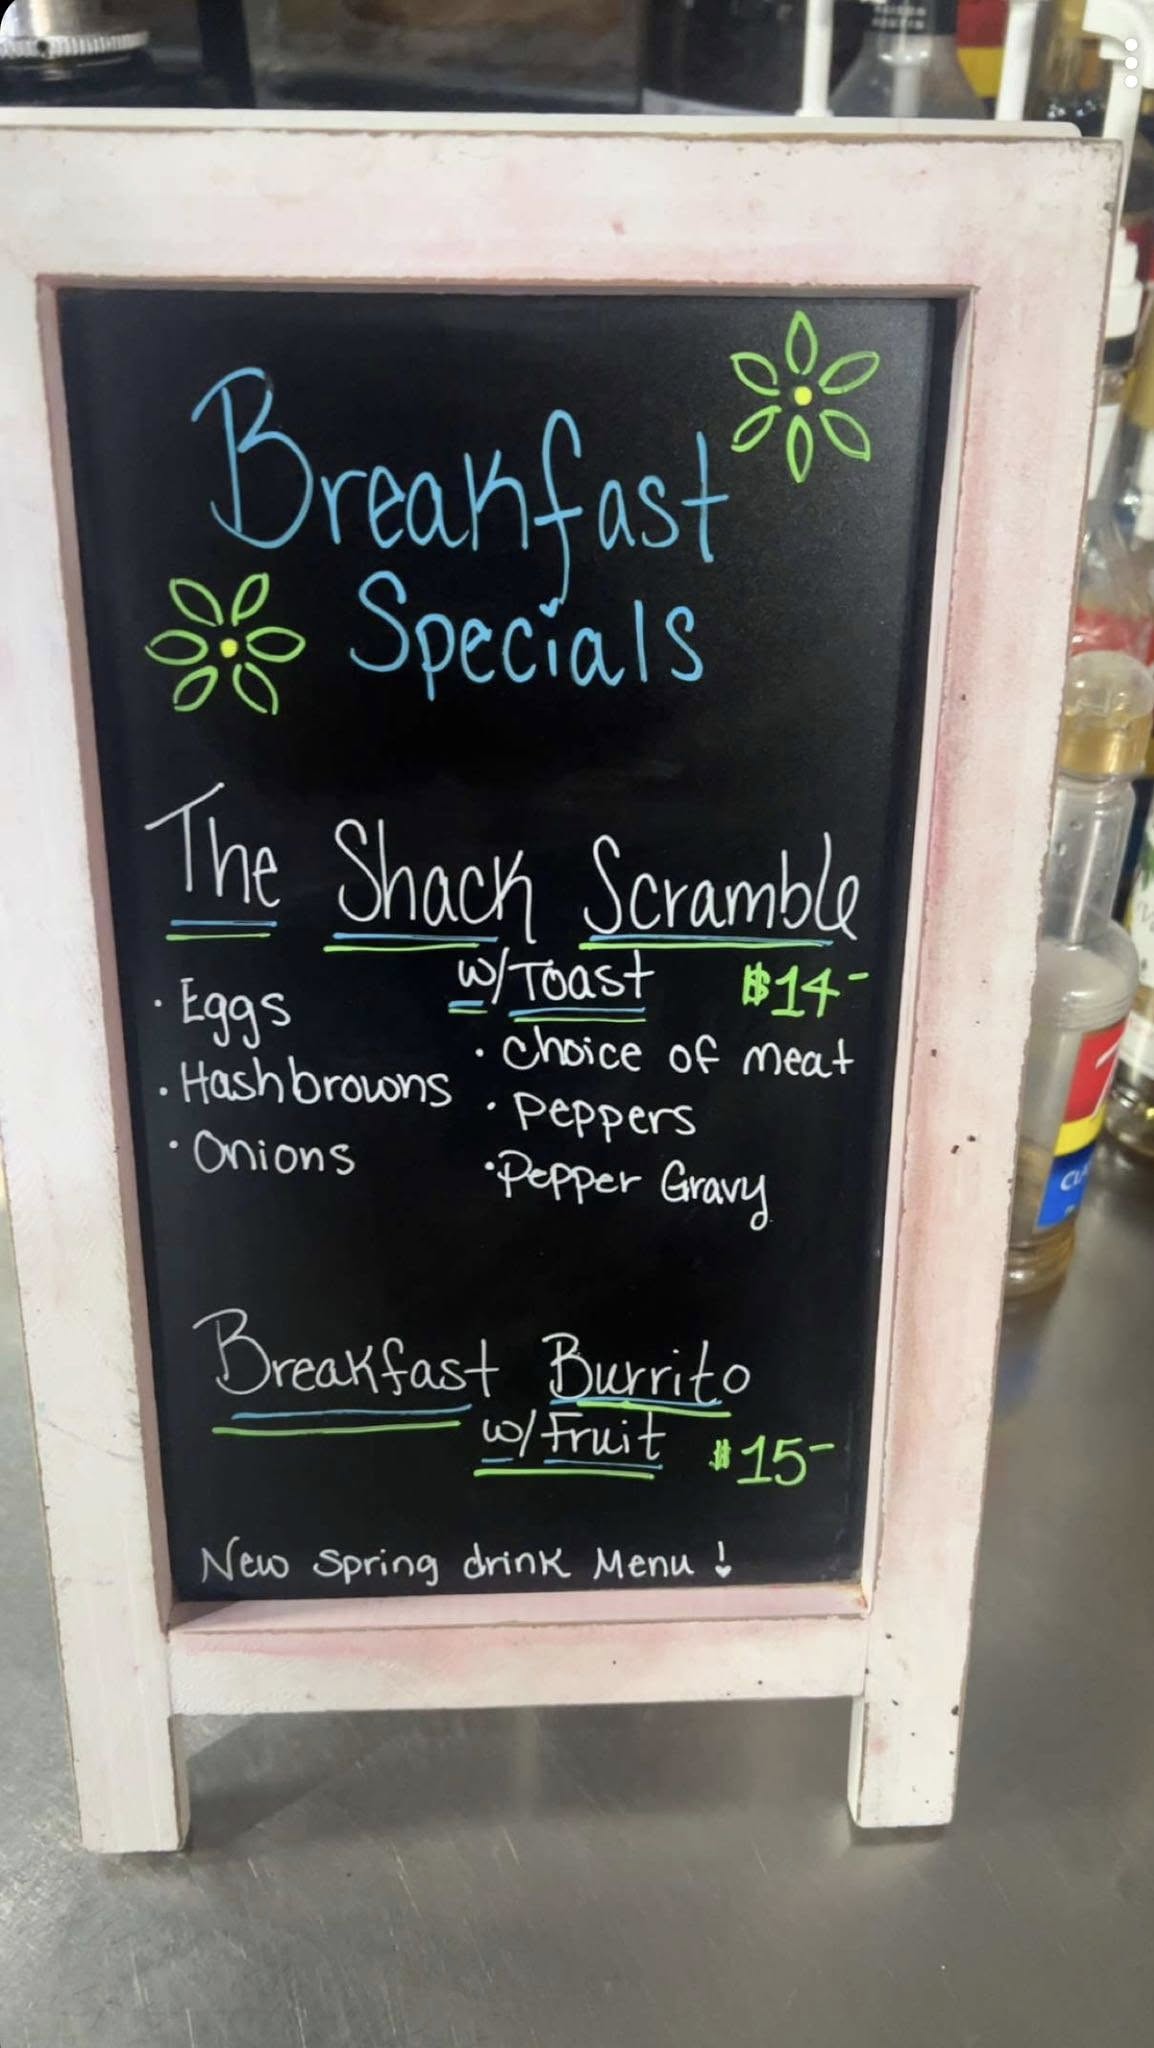 Breakfast
Specials
The Shack Scramble
w/Toast $14-
· Eggs
· Hashbrowns
· Onions
· Choice of meat
· Peppers
· Pepper Gravy
Breakfast Burrito
w/Fruit $15-
New Spring drink Menu !